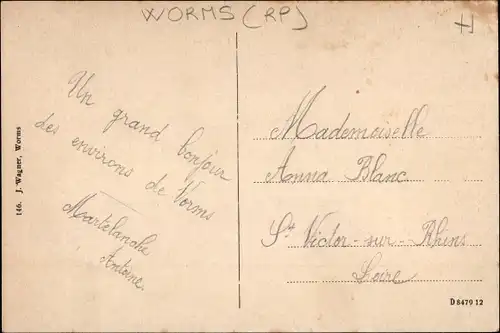 WORMS (RP)
H
Un grand bonjour
des environs de Vorms
Martelanche
Antoine
Mademoiselle
Anna Blanc
St Victor-sur-Rhins
Loire
146. J. Wagner, Worms
D 8479 12